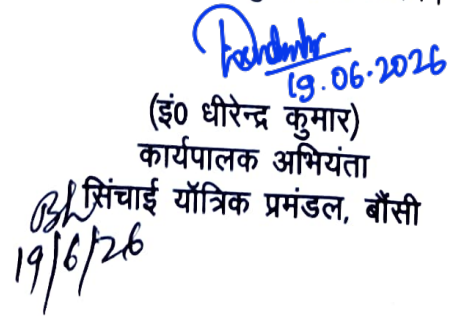 19.06.2026
(इं0 धीरेन्द्र कुमार)
कार्यपालक अभियंता
सिंचाई याँत्रिक प्रमंडल, बौंसी
19/6/26